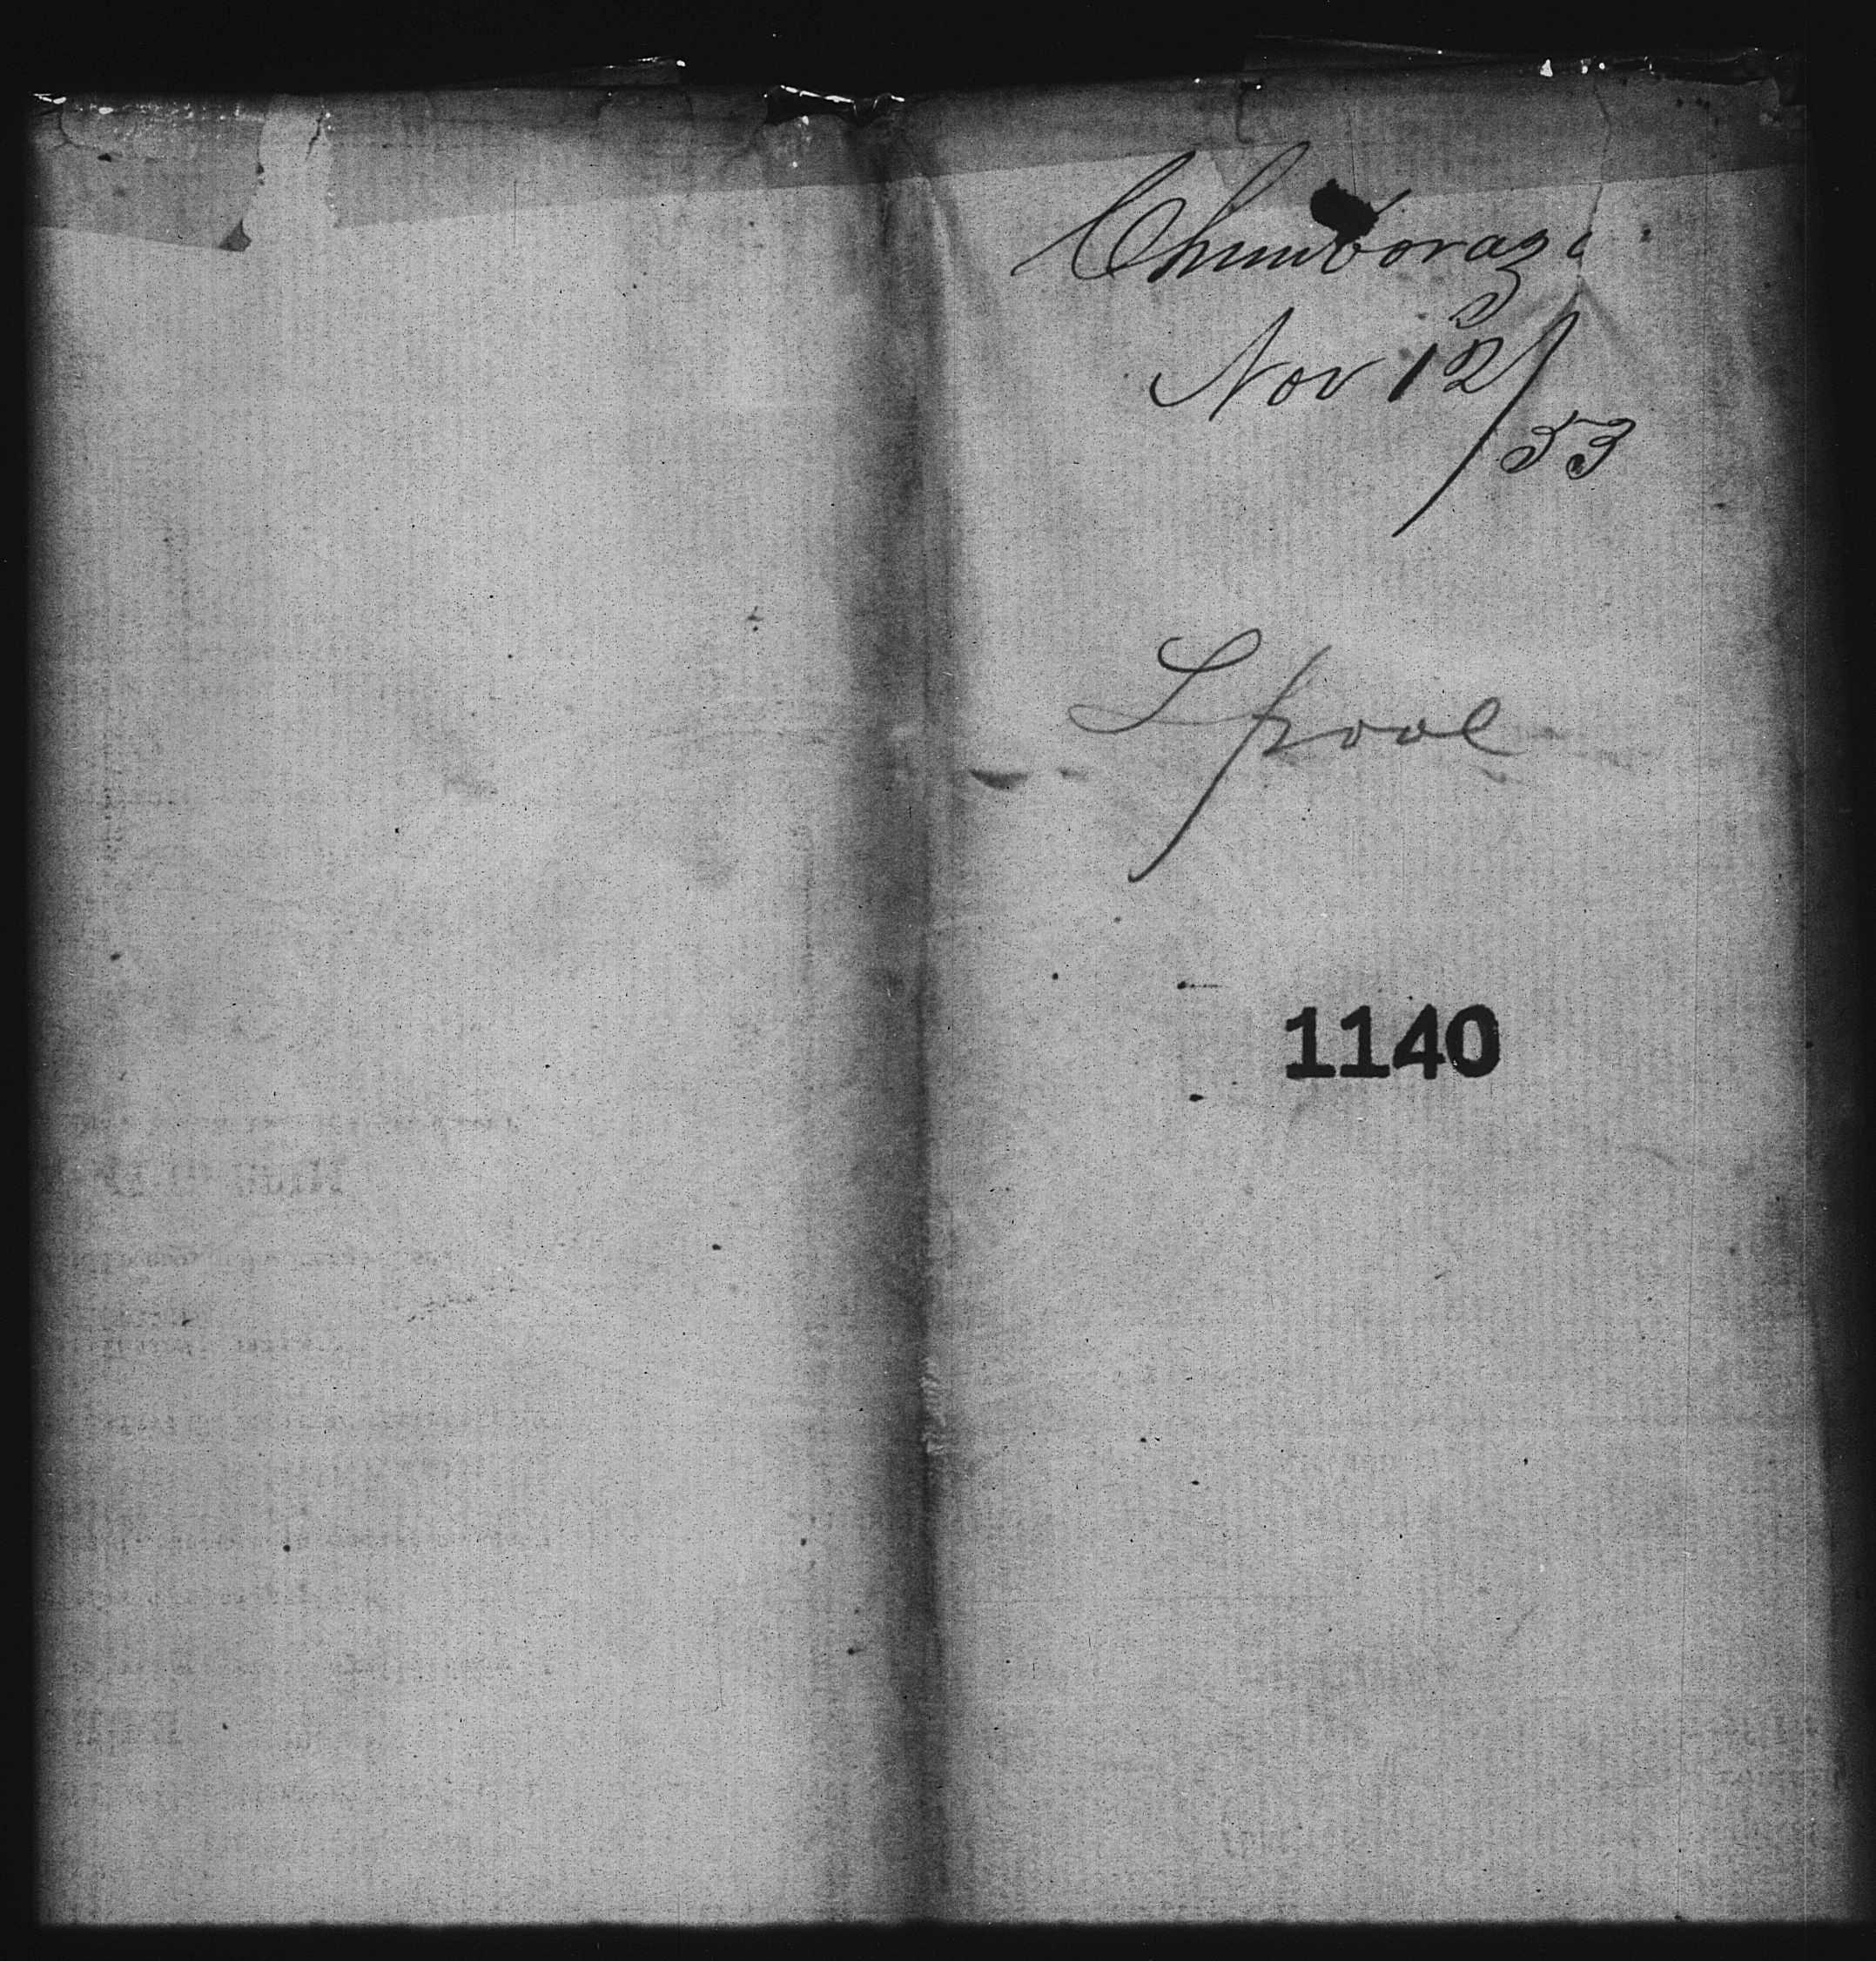 Chimborazo
Nov 12/53
Lpool
1140